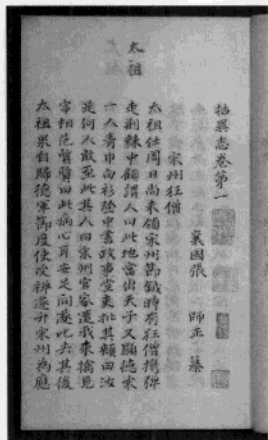 太祖
括異志卷第一
襄國張 師正 纂
宋州狂僧
太祖仕周日尚未領宋州節鉞時有狂僧攜彈
走荊棘中顧謂人曰此地當出天子又顯德末
一人青巾白衫登中書政事堂吏批其頰曰汝
是何人敢至此其人曰宋州官家遣我來擒見
宰相范質質曰此病心耳安足問遂叱去其後
太祖果自歸德軍節度使受禪遂升宋州為應